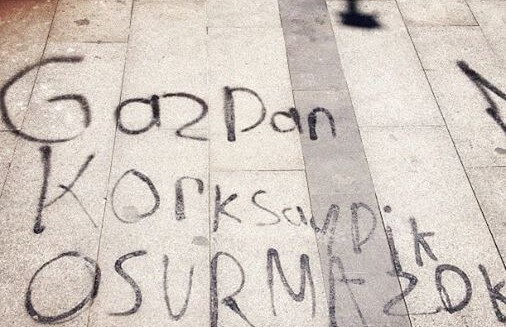 Gazdan
Korksaydik
OSURMAZDK